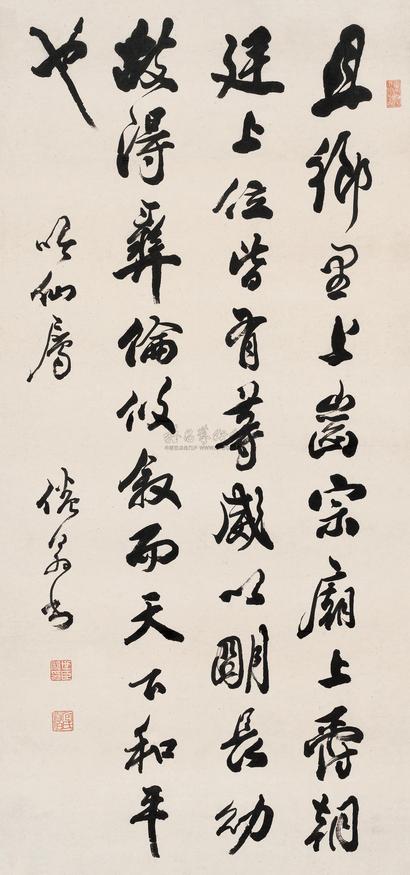 且鄉里上齒宗廟上爵朝
廷上位皆有等威以明長幼
故得彝倫攸敘而天下和平
也
吟仙屬
倦